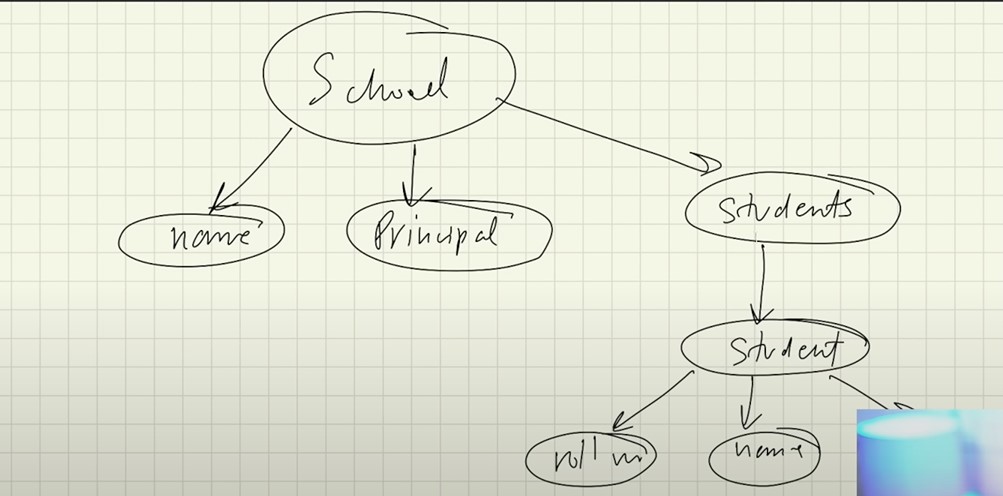 School
name
Principal
Students
Student
roll no
name